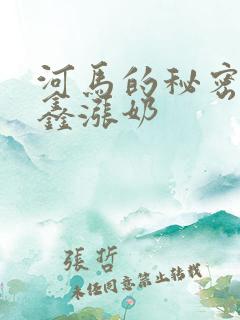 河馬的秘密
鑫漲奶
張哲
未經同意禁止轉載